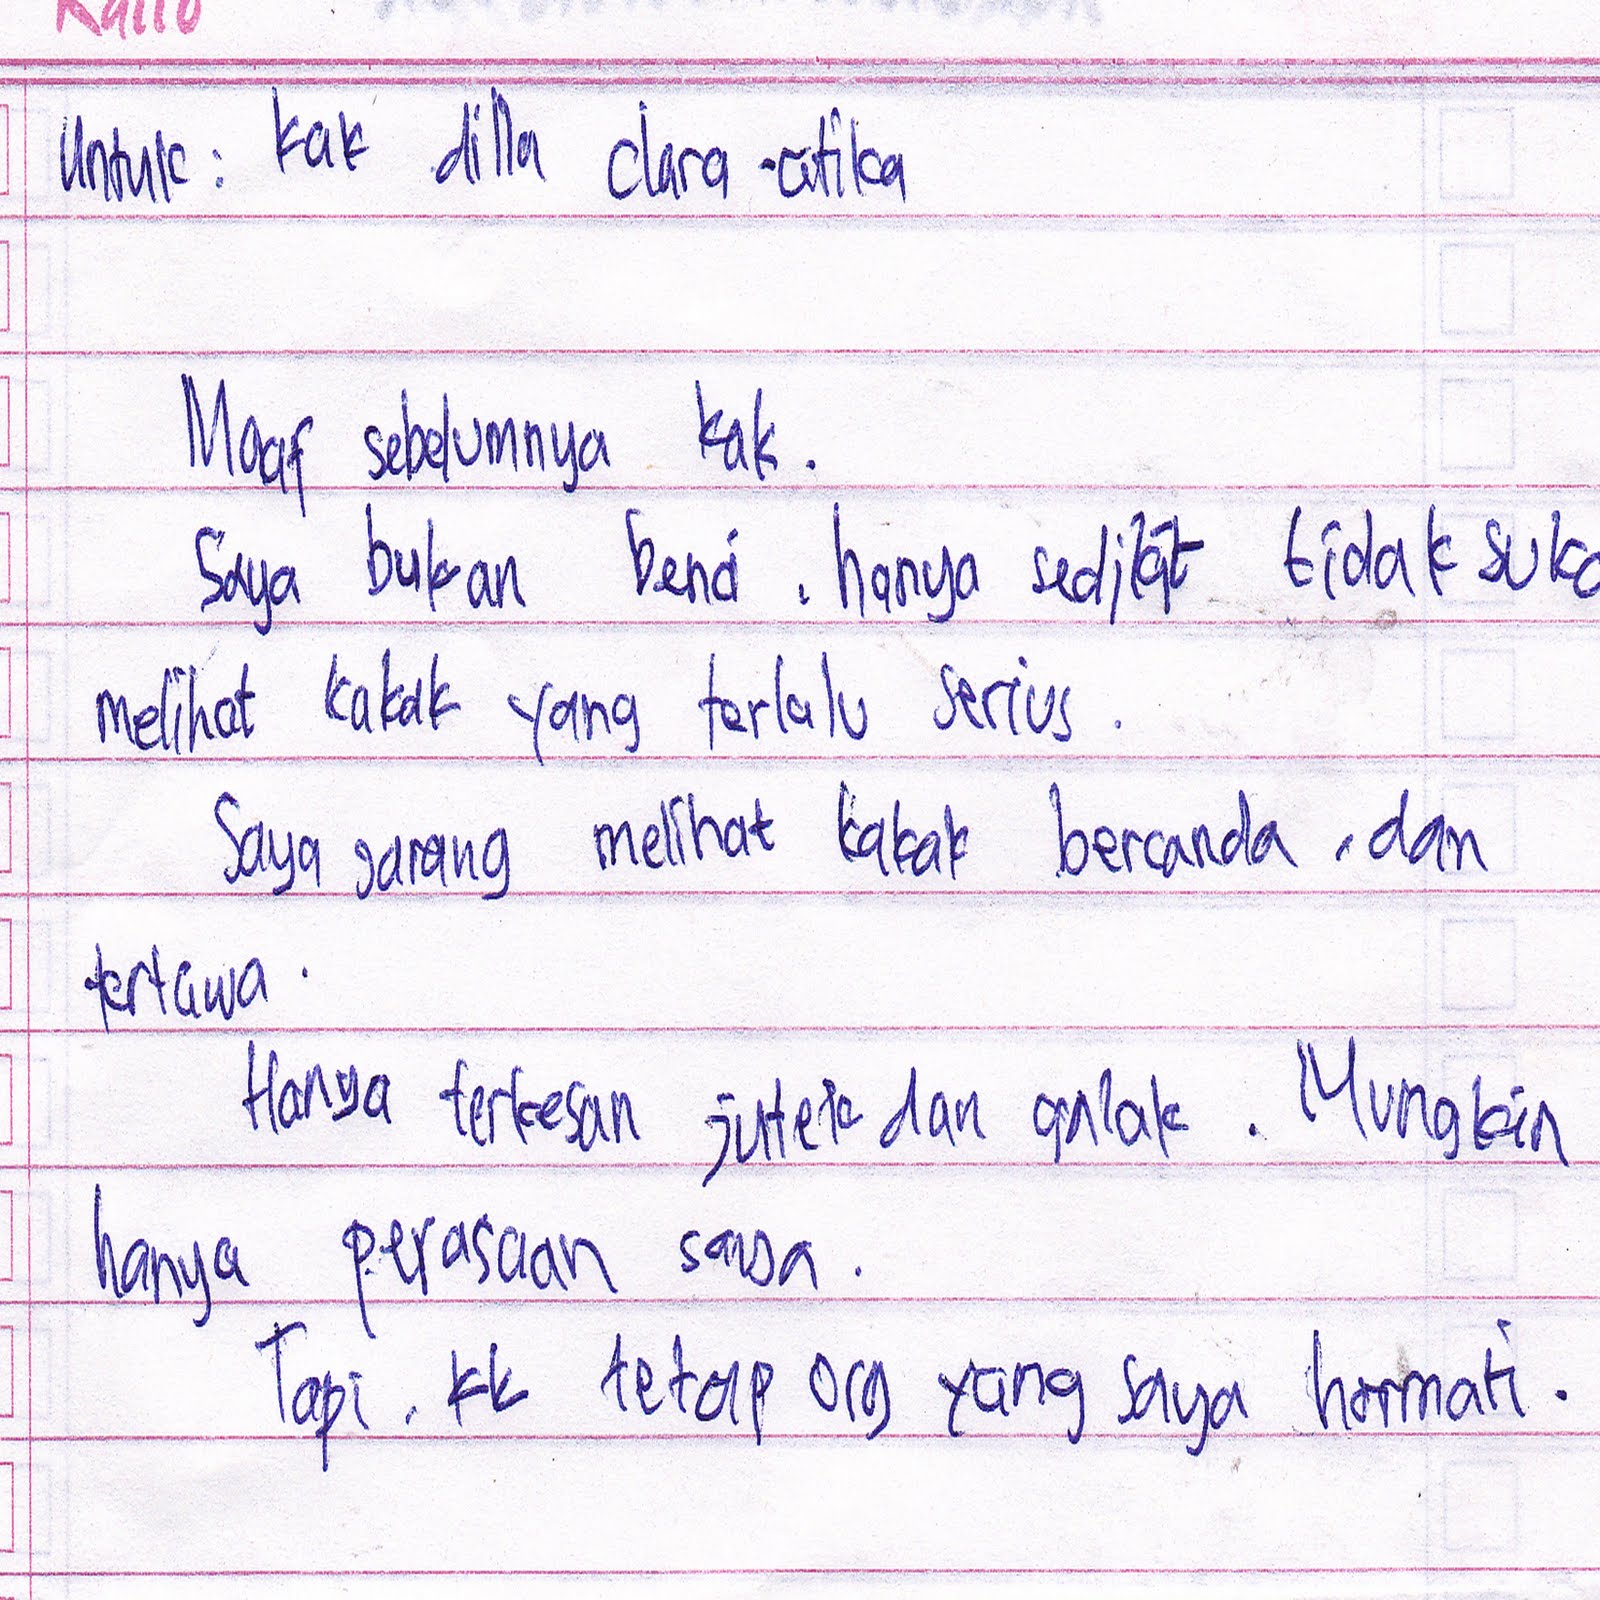 Untuk : kak dilla clara atika
Maaf sebelumnya kak.
Saya bukan benci, hanya sedikit tidak suka
melihat kakak yang terlalu serius.
Saya jarang melihat kakak bercanda, dan
tertawa.
Hanya terkesan jutek dan galak. Mungkin
hanya perasaan saya.
Tapi, kk tetap org yang saya hormati.